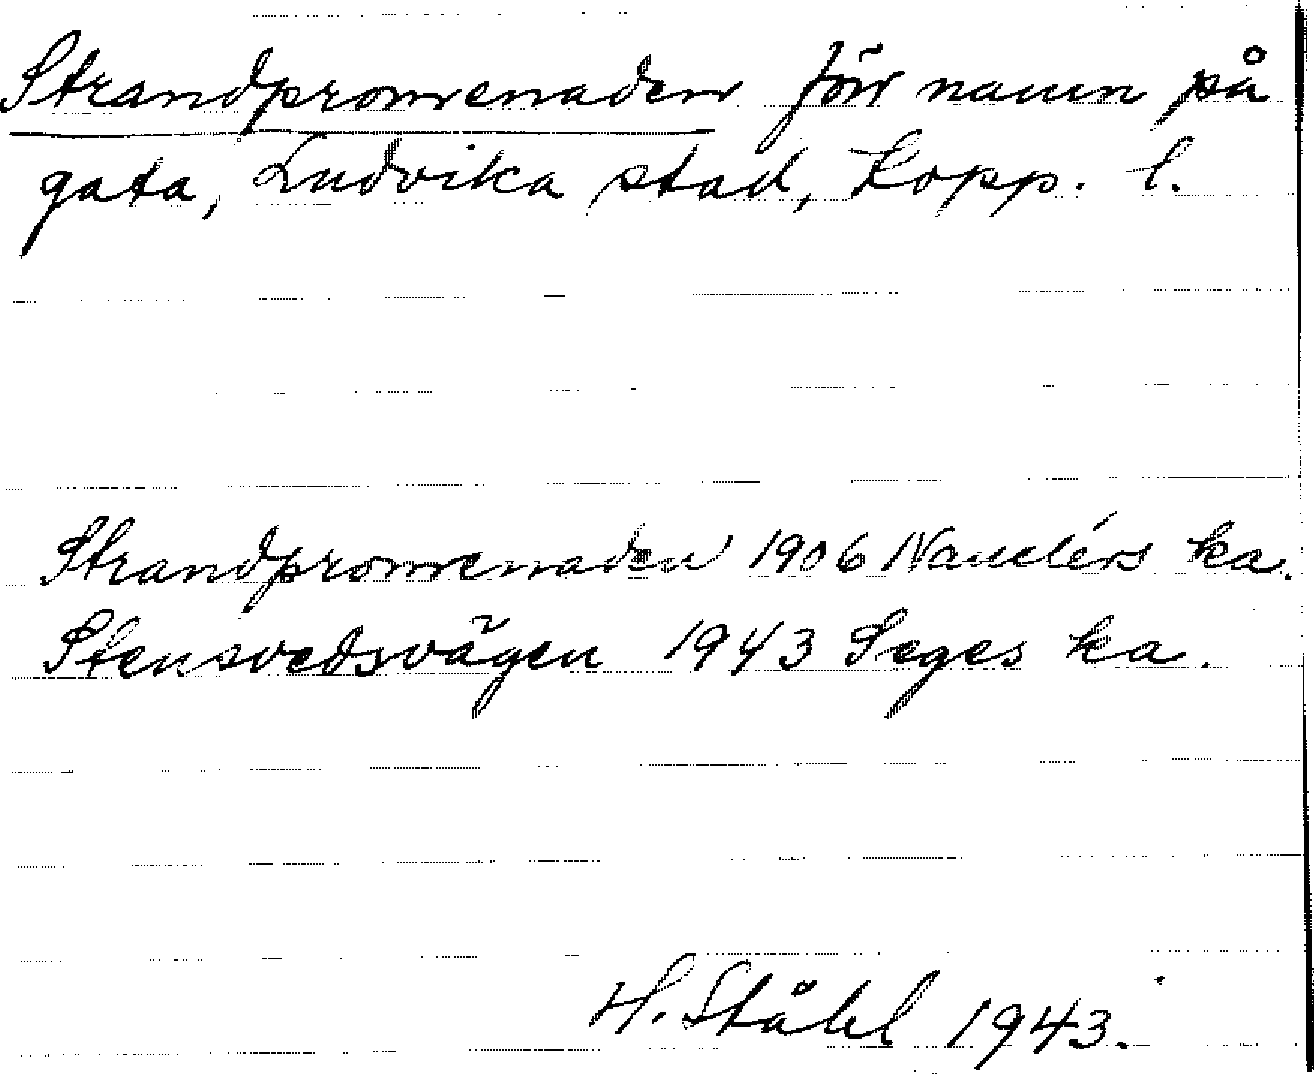 Strandpromenaden förr namn på
gata, Ludvika stad, Kopp. l.
Strandpromenaden 1906 Nauclérs ka.
Stensvedsvägen 1943 Seges ka.
H. Ståhl 1943.